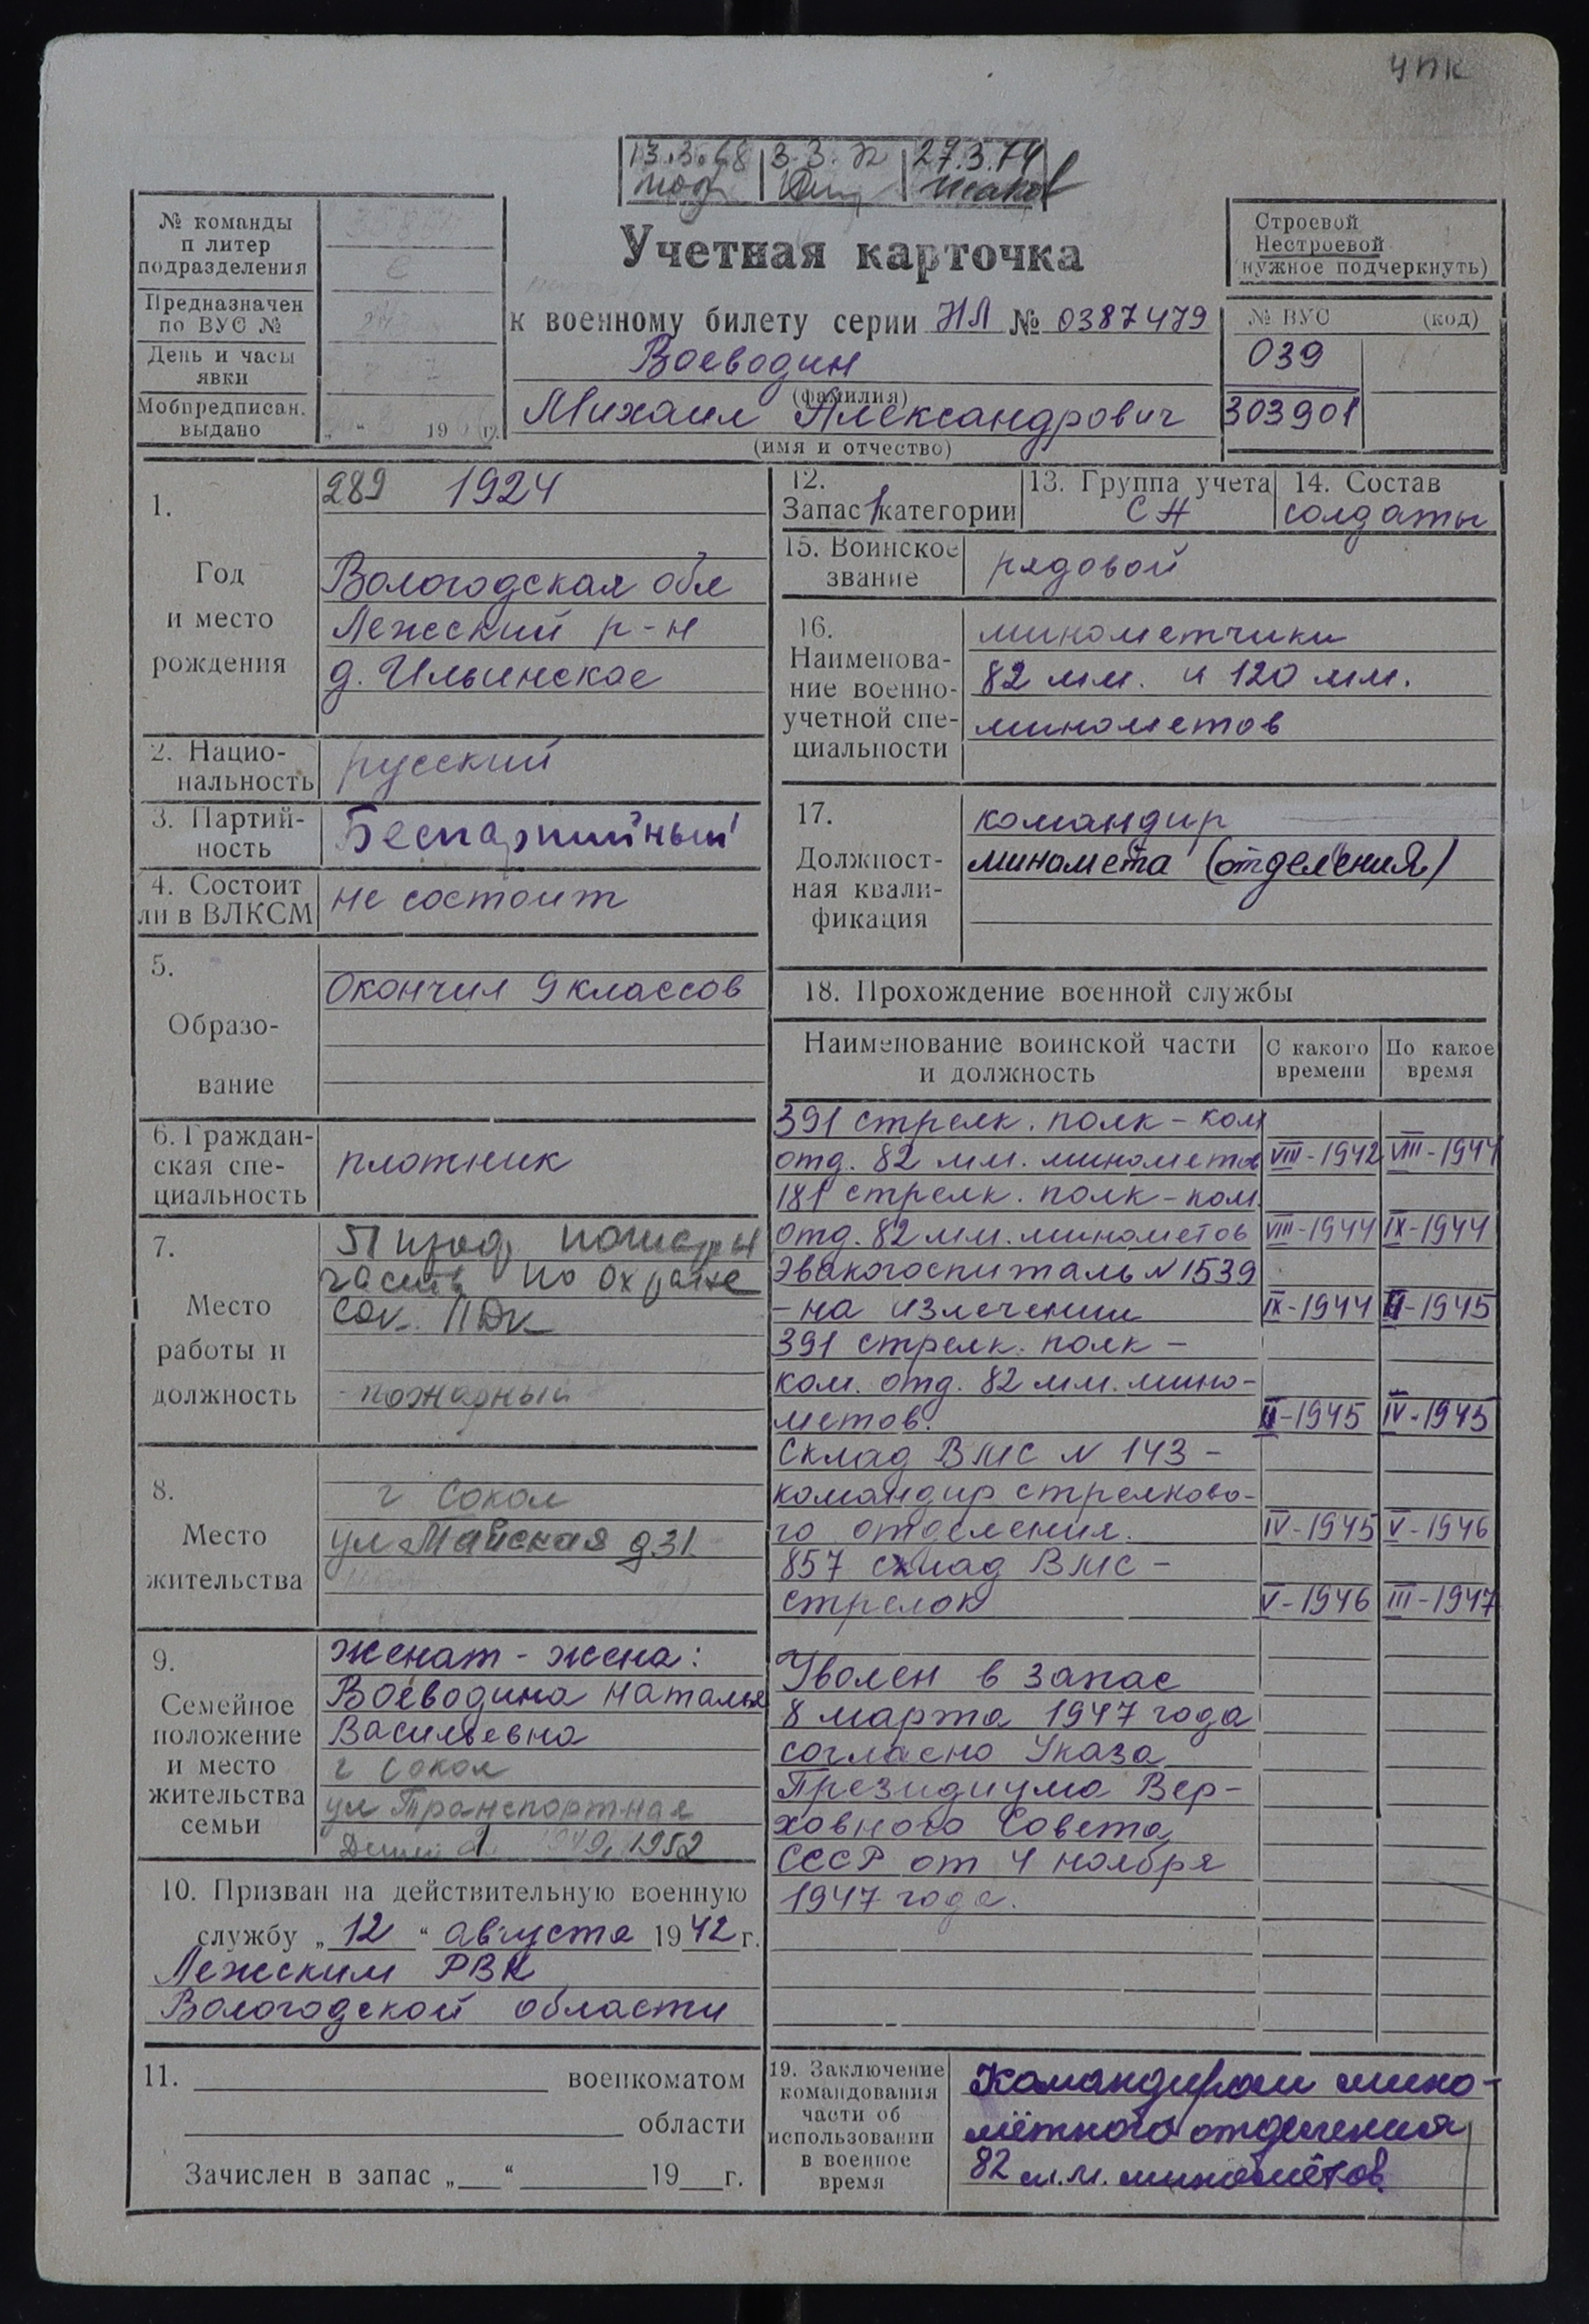 ЧПК
13.3.68 3.3.72 27.3.74
№ команды
п литер
подразделения
Предназначен
по ВУС №
День и часы
явки
Мобпредписан.
выдано
„ “ 19 г.
Учетная карточка
к военному билету серии НЛ № 0387479
Воеводин
(фамилия)
Михаил Александрович
(имя и отчество)
Строевой
Нестроевой
(нужное подчеркнуть)
№ ВУС (код)
039
303901
1.
Год
и место
рождения
289 1924
Вологодская обл
Лежский р-н
д. Ильинское
2. Нацио-
нальность
русский
3. Партий-
ность
Беспартийный
4. Состоит
ли в ВЛКСМ
не состоит
5.
Образо-
вание
Окончил 9 классов
6. Граждан-
ская спе-
циальность
плотник
7.
Место
работы и
должность
часть по охране
Сок. ПДК
- пожарный
8.
Место
жительства
г Сокол
ул Майская д 31
9.
Семейное
положение
и место
жительства
семьи
женат - жена:
Воеводина Наталья
Васильевна
г Сокол
ул Транспортная
1952
10. Призван на действительную военную
службу „ 12 “ августа 1942 г.
Лежским РВК
Вологодской области
11. военкоматом
области
Зачислен в запас „ “ 19 г.
12.
Запас 1 категории
13. Группа учета
СА
14. Состав
солдаты
15. Воинское
звание
рядовой
16.
Наименова-
ние военно-
учетной спе-
циальности
минометчики
82 мм. и 120 мм.
минометов
17.
Должност-
ная квали-
фикация
командир
миномета (отделения)
18. Прохождение военной службы
Наименование воинской части
и должность
С какого
времени
По какое
время
391 стрелк. полк - ком
отд. 82 мм. минометов VIII-1942 VIII-1944
181 стрелк. полк - ком.
отд. 82 мм. минометов VIII-1944 IX-1944
Эвакогоспиталь N 1539
- на излечении IX-1944 II-1945
391 стрелк. полк -
ком. отд. 82 мм. мино-
метов. II-1945 IV-1945
Склад ВМС N 143 -
командир стрелково-
го отделения. IV-1945 V-1946
857 склад ВМС -
стрелок V-1946 III-1947
Уволен в запас
8 марта 1947 года
согласно Указа
Президиума Вер-
ховного Совета
СССР от 4 ноября
1947 года.
19. Заключение
командования
части об
использовании
в военное
время
Командиром мино-
мётного отделения
82 м.м. миномётов.